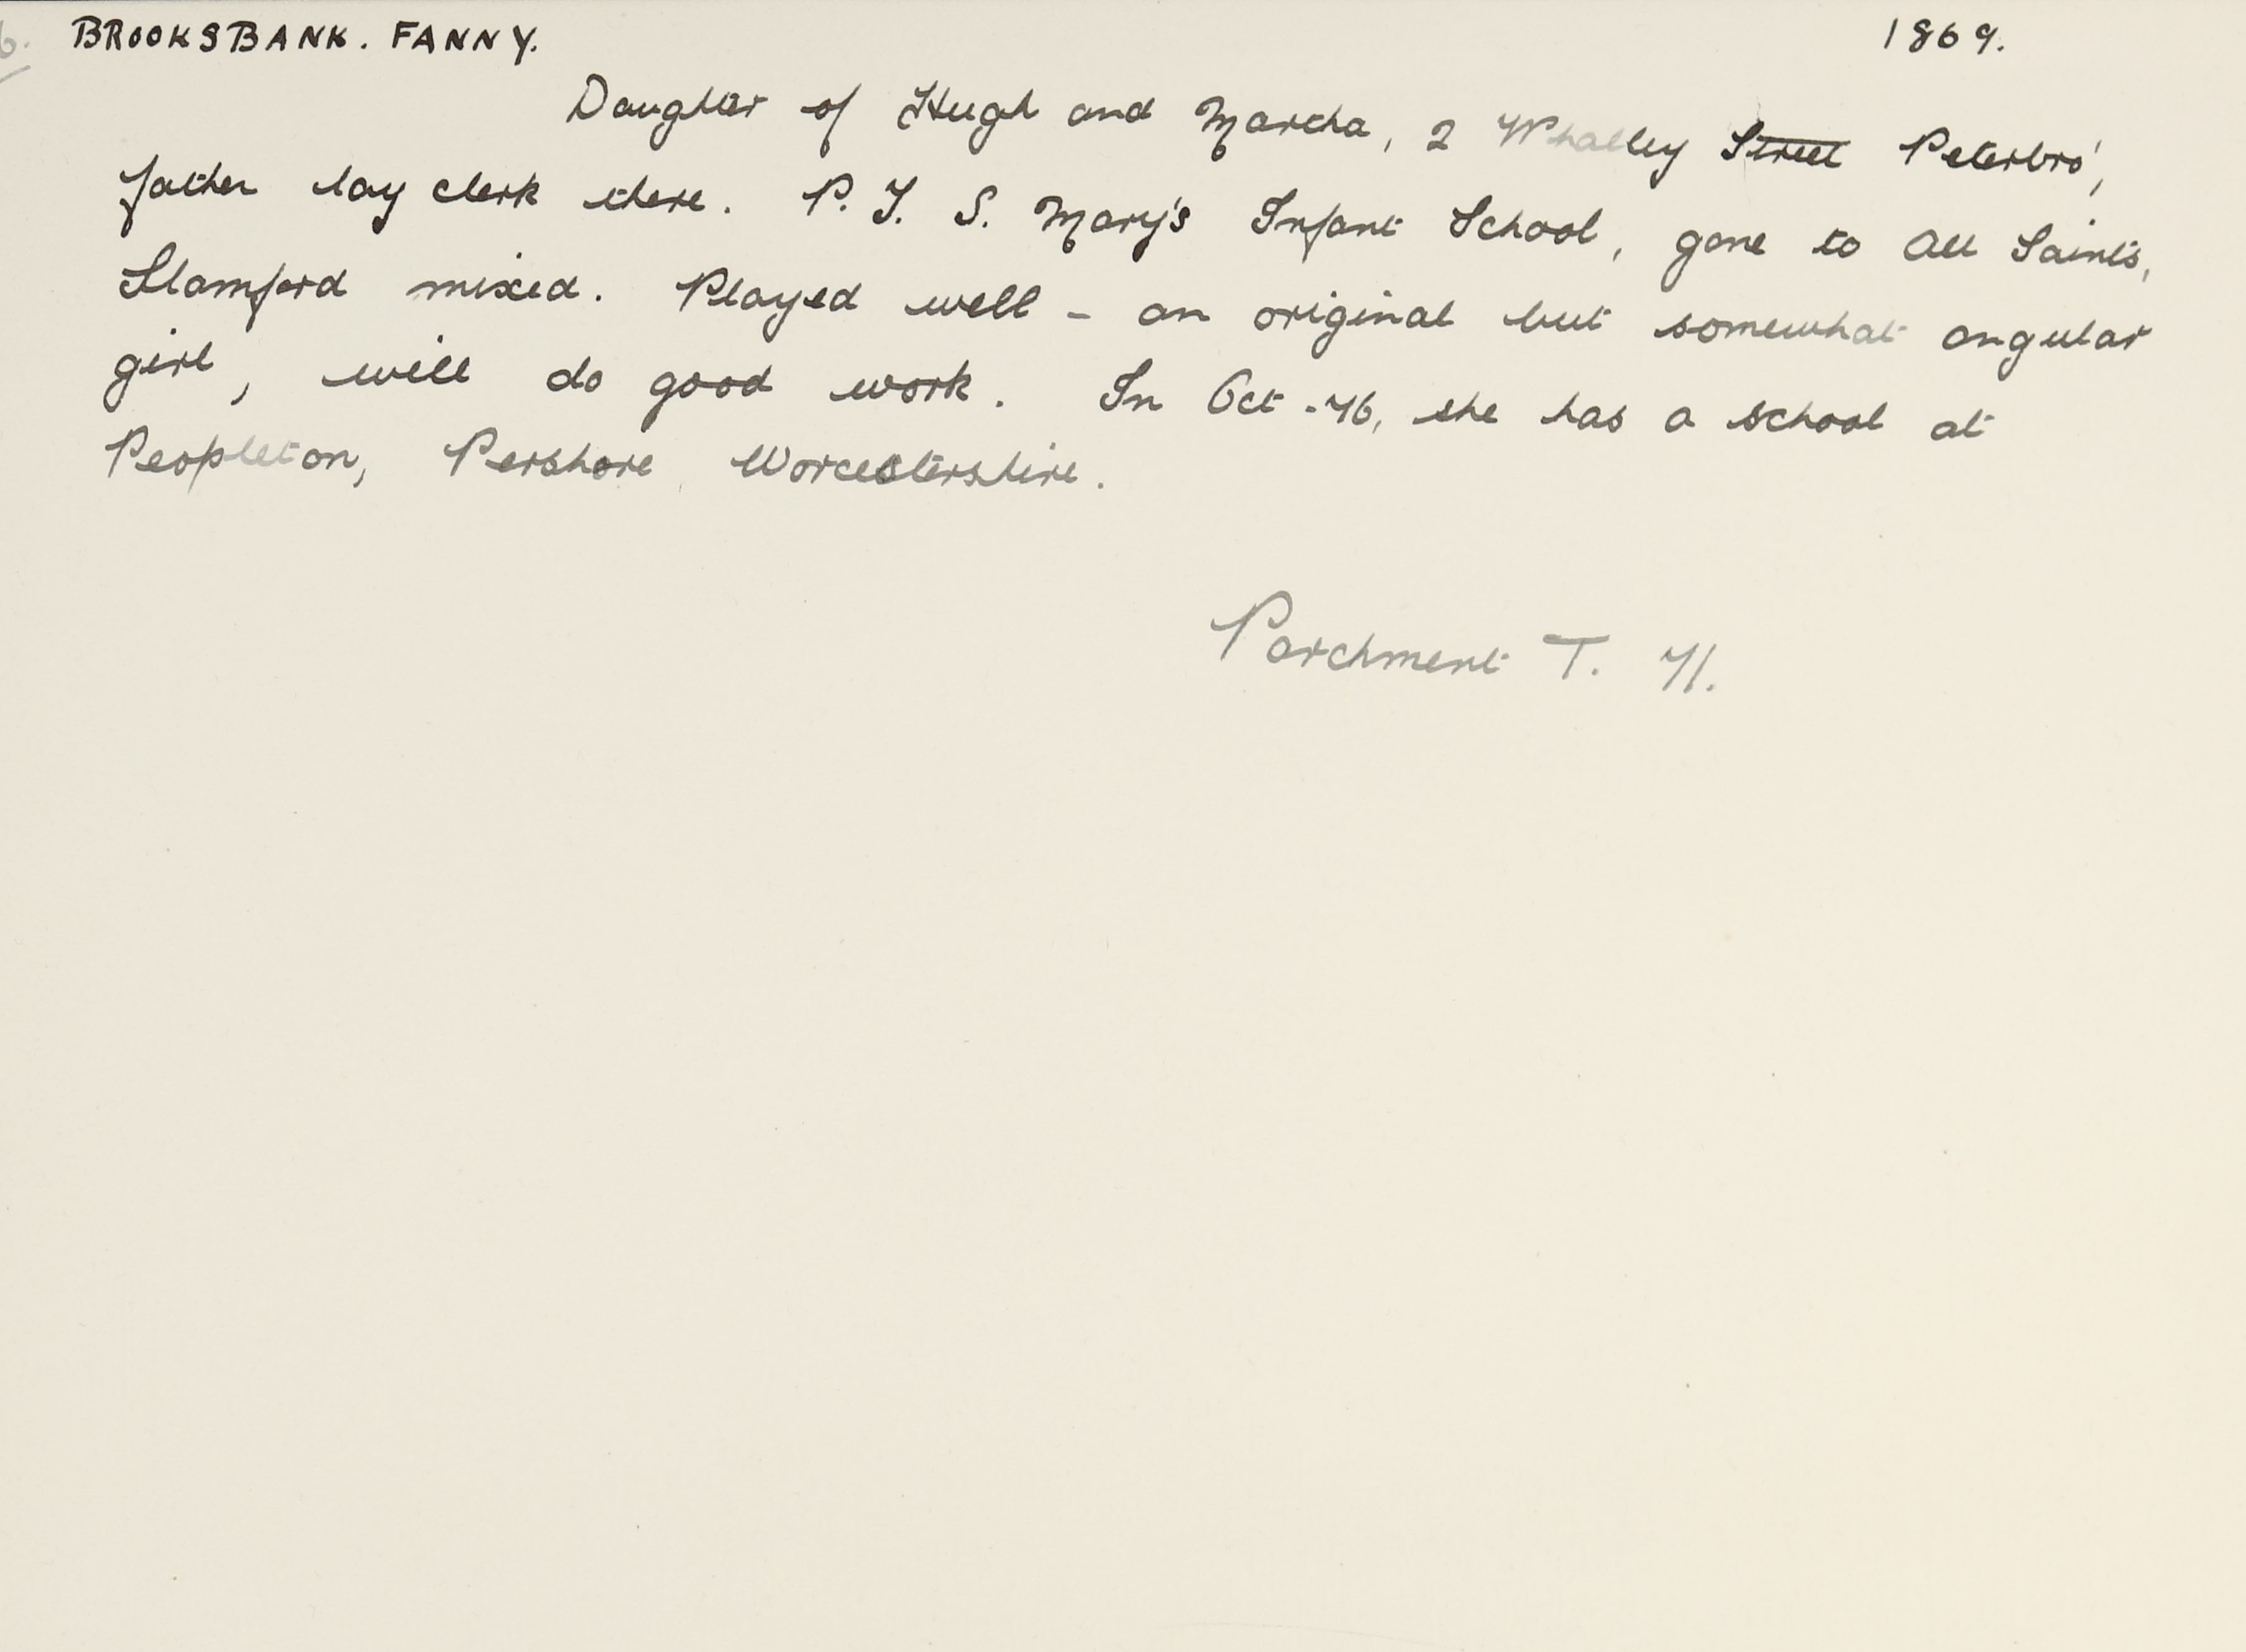 BROOKSBANK. FANNY. 1869.
Daughter of Hugh and Martha, 2 Whalley Street Peterbro',
father lay clerk there. P.T. S. Mary's Infant School, gone to All Saints,
Stamford mixed. Played well - an original but somewhat angular
girl, will do good work. In Oct -76, she has a school at
Peopleton, Pershore Worcestershire.
Parchment T. 71.